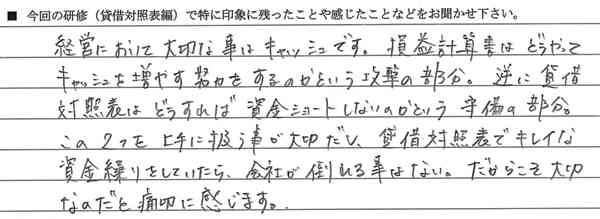 ■ 今回の研修（貸借対照表編）で特に印象に残ったことや感じたことなどをお聞かせ下さい。
経営において大切な事はキャッシュです。損益計算書はどうやって
キャッシュを増やす努力をするのかという攻撃の部分。逆に貸借
対照表はどうすれば資金ショートしないのかという守備の部分。
この2つを上手に扱う事が大切だし、貸借対照表でキレイな
資金繰りをしていたら、会社が倒れる事はない。だからこそ大切
なのだと痛切に感じます。